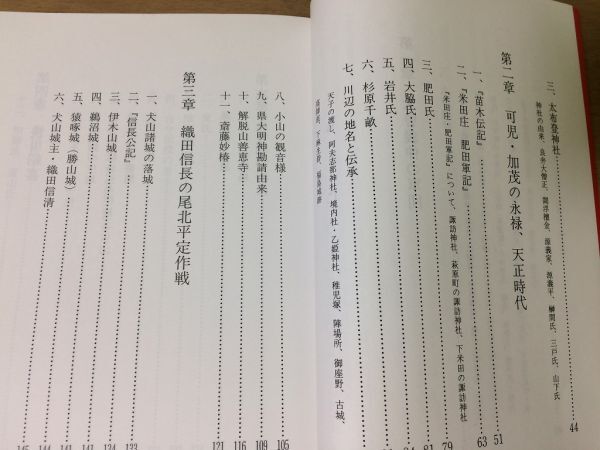 三、太布登神社 44
神社の由来、良弁大僧正、閻浮檀金、源義家、源義平、榊間氏、三戸氏、山下氏
第二章 可児・加茂の永禄、天正時代 51
一、『苗木伝記』 63
二、『米田庄 肥田軍記』 79
『米田庄 肥田軍記』について、諏訪神社、萩原町の諏訪神社、下米田の諏訪神社
三、肥田氏 81
四、大脇氏
五、岩井氏
六、杉原千畝
七、川辺の地名と伝承
天子の渡し、阿夫志那神社、境内社・乙姫神社、稚児塚、陣場所、御座野、古城、
八、小山の観音様 105
九、県大明神勧請由来 109
十、解脱山善恵寺 116
十一、斎藤妙椿 121
第三章 織田信長の尾北平定作戦
一、犬山諸城の落城 133
二、『信長公記』 134
三、伊木山城
四、鵜沼城 141
五、猿啄城（勝山城） 144
六、犬山城主・織田信清 145